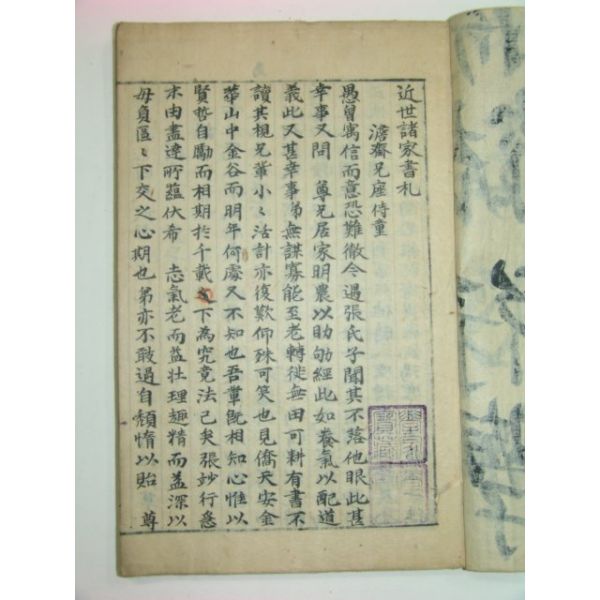 近世諸家書札
澹齋兄座侍童
愚曾寓信而意恐難徹今遇張氏子聞其不落他眼此甚
幸事又問 尊兄居家明農以助劬經此如養氣以配道
義此又甚幸事弟無謀寡能至老轉徙無田可耕有書不
讀其視兄輩小〻活計亦復歎仰殊可笑也見僑天安金
華山中金谷而明年何處又不知也吾輩旣相知心惟以
賢哲自勵而相期於千載 下為究竟法已矣張妙行悤
未由盡達所蘊伏希 志氣老而益壯理趣精而益深以
毋負區〻下交之心期也弟亦不敢過自頹惰以貽 尊